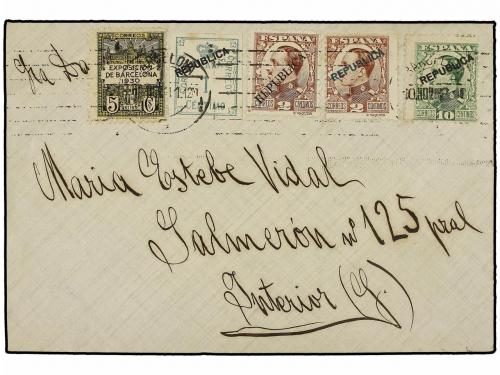 EXPOSICION
DE BARCELONA
1930
5 Cs
REPUBLICA
ESPAÑA
REPUBLICA
2 CENTIMOS
ESPAÑA
REPUBLICA
2 CENTIMOS
ESPAÑA
REPUBLICA
10
Maria Estebe Vidal
Salmerón nº 125 pral
Interior (G.)